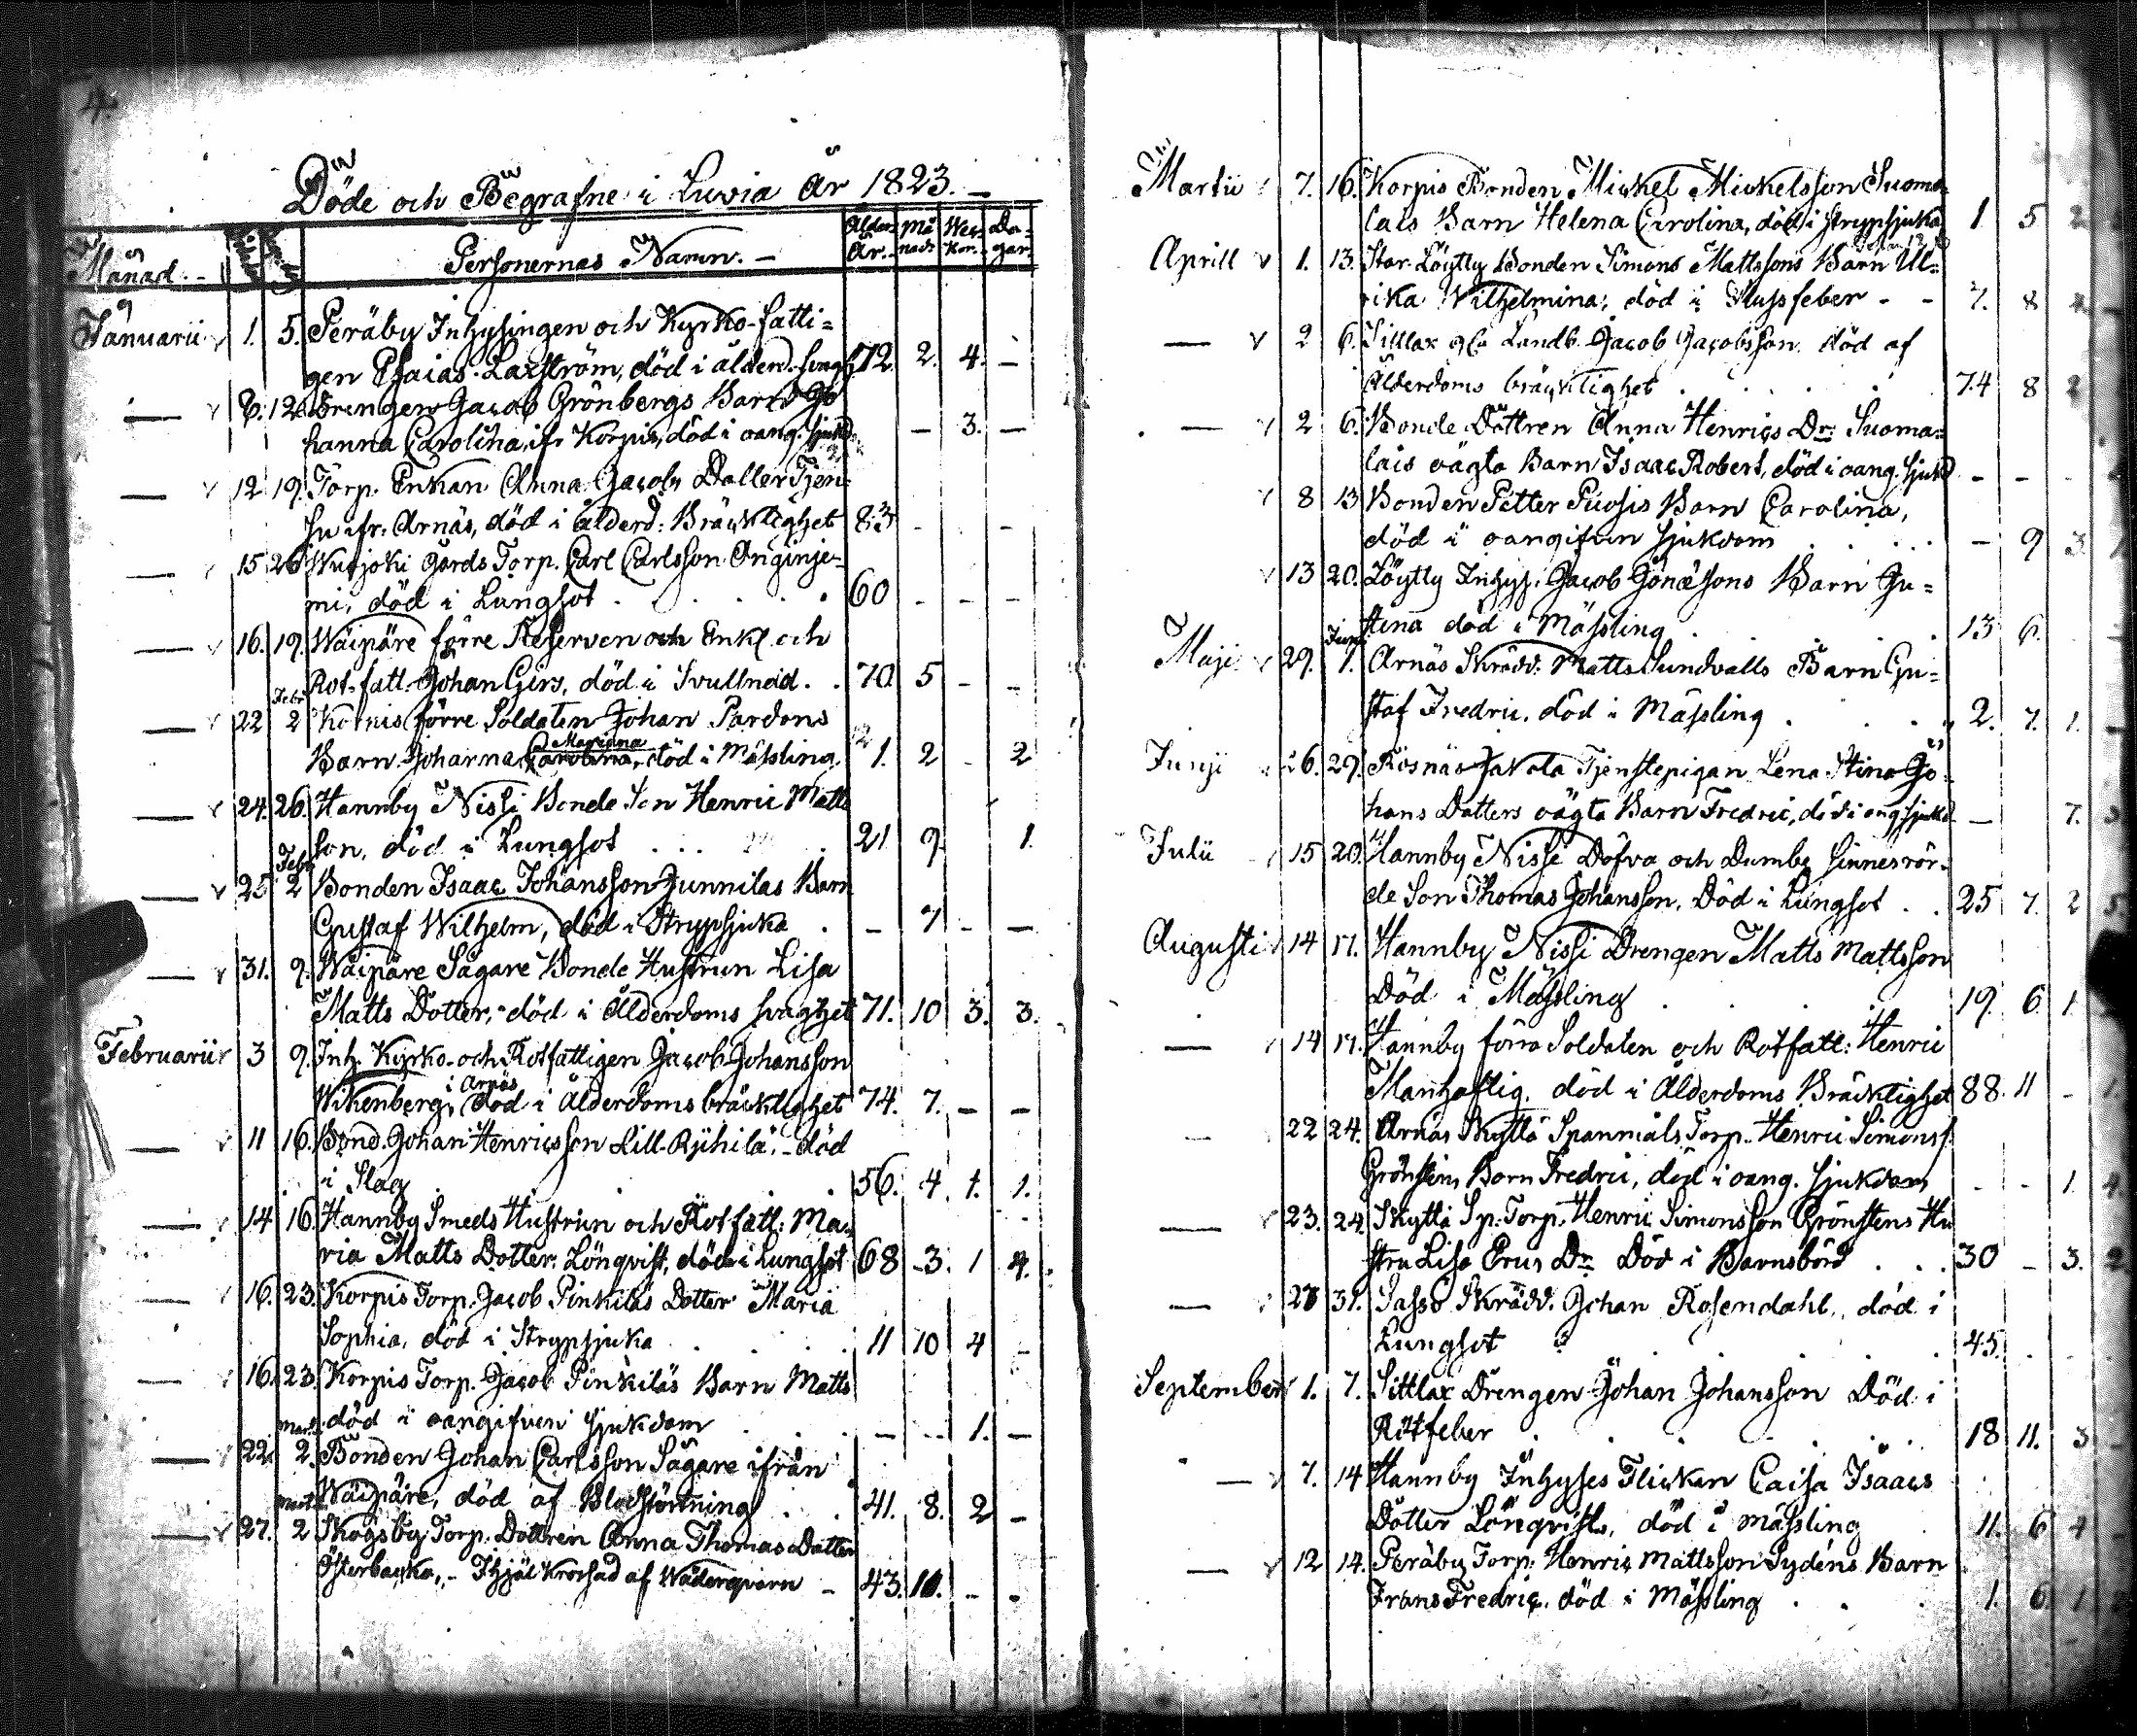 Döde och Begrafne i Luvia År 1823. –
Månad. – Personernas Namn. – Ålder År. Må nad: Wec kor. Da- gar.
Januarii 1. 5. Peräby Inhysingen och Kyrko-fatti=
gen Esaias Laxström, död i ålderd. svagh. 72. 2. 4. –
— 8. 12. Drengen Jacob Grönbergs Barn Jo
hanna Carolina, ifr. Korpis, död i oang. sjukd. – 3. –
— 12 19. Torp. Enkan Anna Jacobs Dotter Tjen=
su ifr. Arnäs, död i ålderd: Bräcklighet 83 - - -
— 15 26 Wuojoki Gårds Torp. Carl Carlsson Anginje=
mi, död i Lungsot . . . . 60 - - -
— 16. 19. Wäipäre förre Reserven och Enkl. och
Rot-fatt. Johan Girs, död i Svullnad. . 70. 5 - -
— 22 Febr 2 Korpis förre Soldaten Johan Pardons
Barn Johanna Carolina Marianna, död i Mässling 1. 2 - 2
— 24. 26. Hannby Nissi Bonde Son Henric Matts
son, död i Lungsot . . . 21 9. 1.
— 25 Febr 2 Bonden Isaac Johansson Junnilas Barn
Gustaf Wilhelm, död i Strypsjuka . – 7 – –
— 31. 9. Wäipäre Sågare Bonde Hustrun Lisa
Matts Dotter, död i Ålderdoms svaghet 71. 10 3. 3.
Februarii 3 9. Inh. Kyrko- och Rotfattigen Jacob Johansson
Wikenberg, i Arnäs död i Ålderdoms bräcklighet 74. 7. – –
— 11 16. Bond. Johan Henricsson Lill-Rjihilä, – död
i Slag . . 56. 4. 1. 1.
— 14 16. Hannby Smeds Hustrun och Rotfatt: Ma=
ria Matts Dotter Lönqvist, död i Lungsot 68 3. 1 4.
— 16. 23. Korpis Torp. Jacob Pinkiläs Dotter Maria
Sophia, död i Strypsjuka . . . 11 10 4 –
— 16. 23. Korpis Torp. Jacob Pinkiläs Barn Matts
död i oangifven sjukdom . . – – 1. –
— 22. Mart. 2. Bonden Johan Carlsson Sågare ifrån
Wäipäre, död af Blodstörtning . . 41. 8. 2 –
— 27. Mart. 2 Skogsby Torp. Dottren Anna Thomas Dotter
Österbacka, – Ihjäl krossad af Wäderqvarn – 43. 10. - -
Martii 7. 16. Korpis Bonden Mickel Mickelsson Suoma=
lais Barn Helena Carolina, död i strypsjuka 1 5 2
Aprill 1. 13. Stor-Löytty Bonden Simons Mattssons Barn Ul=
rika Wilhelmina, död i Flussfeber - - 7. 8
— 2 6. Sittlax Landb. Jacob Jacobsson död af
Ålderdoms bräcklighet . . . 74 8 2
— 2 6. Bonde Dottren Anna Henrics Dr. Suoma=
lais oägta Barn Isaac Robert, död i oang. sjukd - - -
8 13 Bonden Petter Puosis Barn Carolina,
död i oangifven sjukdom . . . – 9 3.
13 20. Löytty Inhys. Jacob Jonassons Barn Ju=
stina död i Mässling . . . 13 6.
Maji 29. Junji 1. Arnäs Skrädd. Matts Sundvalls Barn Gu=
staf Fredric, död i Mässling . . . 2. 7. 1.
Junji 26. 29. Rosnäs Jakola Tjenstepigan Lena Stina Jo=
hans Dotters oägta Barn Fredric, död i ang. sjukd. – 7. 3
Julii 15 20. Hannby Nissi Döfva och Dumbe sinnesrör=
de Son Thomas Johansson, Död i Lungsot . . 25 7. 2 5
Augusti 14 17. Hannby Nissi Drengen Matts Mattsson
Död i Mässling . . . 19. 6 1
— 14 17. Hannby förra Soldaten och Rotfatt: Henric
Manhaftig, död i Ålderdoms Bräcklighet 88. 11 -
— 22 24. Arnäs Skyttä Spanmåls Torp. Henric Simonss.
Grönstens Barn Fredric, död i oang. sjukdom - - 1. 4
— 23. 24. Skyttä Sp. Torp. Henric Simonsson Grönstens Hu
stru Lisa Erics Dr. Död i Barnsbörd . . . 30 – 3. 2
— 28 31. Sasso Skrädd. Johan Rosendahl, död i
Lungsot . . . 45.
September 1. 7. Sittlax Drengen Johan Johansson Död i
Rötfeber . . . 18 11. 3
— 7. 14 Hannby Inhyses Flickan Caisa Isaacs
Dotter Lönqvists, död i mässling . 11. 6 4
— 12 14. Peräby Torp. Henric Mattsson Sydéns Barn
Frans Fredric, död i Mässling . . . 1. 6. 1